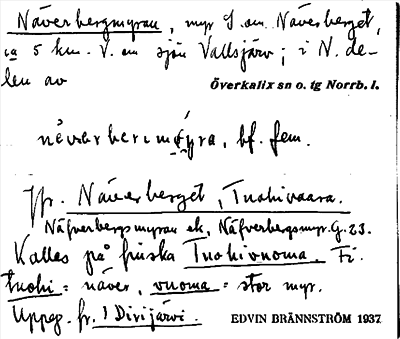 Näverbergmyran, myr S. om Näverberget,
ca 5 km. V. om sjön Vallsjärv; i N. de-
len av Överkalix sn o. tg Norrb. l.
bf. fem.
Jfr. Näverberget, Tuohivaara.
Näfverbergsmyran ek, Näfverbergsmyr. G. 23.
Kalles på finska Tuohivuoma. Fi.
tuohi = näver, vuoma = stor myr.
Uppg. fr. 1 Dirijärvi. EDVIN BRÄNNSTRÖM 1937.